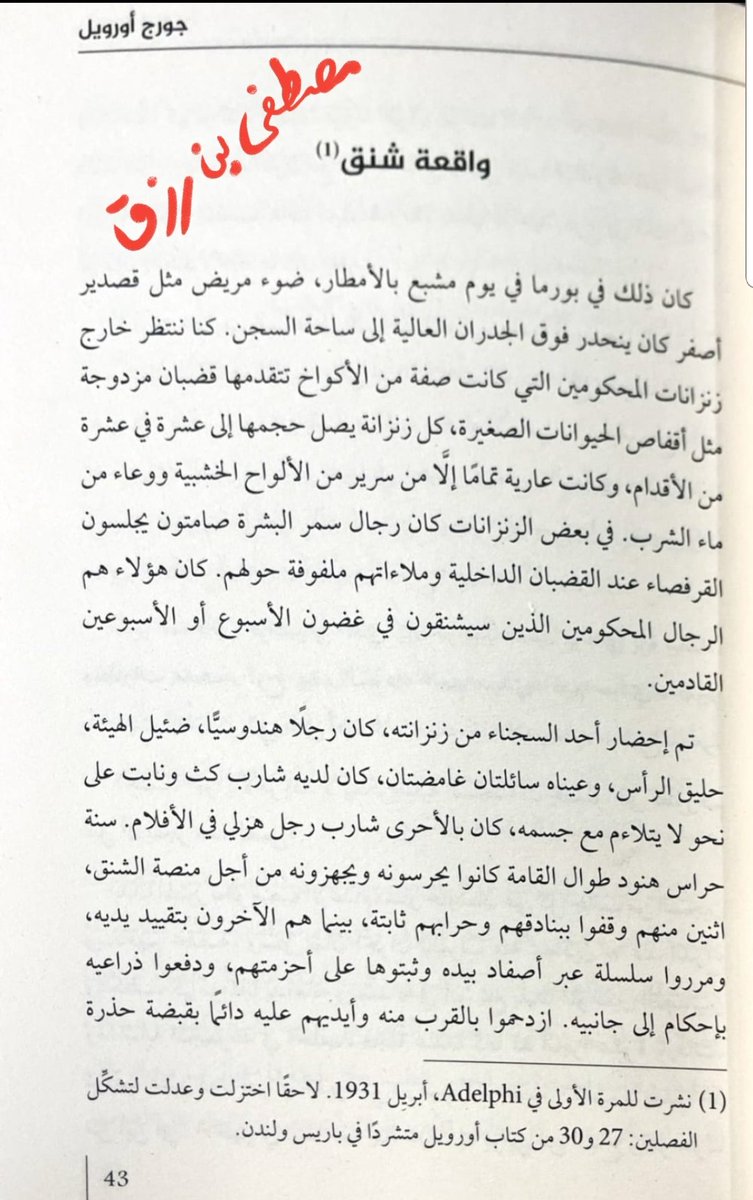 جورج أورويل
مصطفى بن رزق
واقعة شنق(1)
كان ذلك في بورما في يوم مشبع بالأمطار، ضوء مريض مثل قصدير
أصفر كان ينحدر فوق الجدران العالية إلى ساحة السجن. كنا ننتظر خارج
زنزانات المحكومين التي كانت صفة من الأكواخ تتقدمها قضبان مزدوجة
مثل أقفاص الحيوانات الصغيرة، كل زنزانة يصل حجمها إلى عشرة في عشرة
من الأقدام، وكانت عارية تمامًا إلَّا من سرير من الألواح الخشبية ووعاء من
ماء الشرب. في بعض الزنزانات كان رجال سمر البشرة صامتون يجلسون
القرفصاء عند القضبان الداخلية وملاءاتهم ملفوفة حولهم. كان هؤلاء هم
الرجال المحكومين الذين سيشنقون في غضون الأسبوع أو الأسبوعين
القادمين.
تم إحضار أحد السجناء من زنزانته، كان رجلًا هندوسيًّا، ضئيل الهيئة،
حليق الرأس، وعيناه سائلتان غامضتان، كان لديه شارب كث ونابت على
نحو لا يتلاءم مع جسمه، كان بالأحرى شارب رجل هزلي في الأفلام. ستة
حراس هنود طوال القامة كانوا يحرسونه ويجهزونه من أجل منصة الشنق،
اثنين منهم وقفوا ببنادقهم وحرابهم ثابتة، بينما هم الآخرون بتقييد يديه،
ومرروا سلسلة عبر أصفاد بيده وثبتوها على أحزمتهم، ودفعوا ذراعيه
بإحكام إلى جانبيه. ازدحموا بالقرب منه وأيديهم عليه دائمًا بقبضة حذرة
(1) نشرت للمرة الأولى في Adelphi، أبريل 1931. لاحقًا اختزلت وعدلت لتشكِّل
الفصلين: 27 و30 من كتاب أورويل متشردًا في باريس ولندن.
43